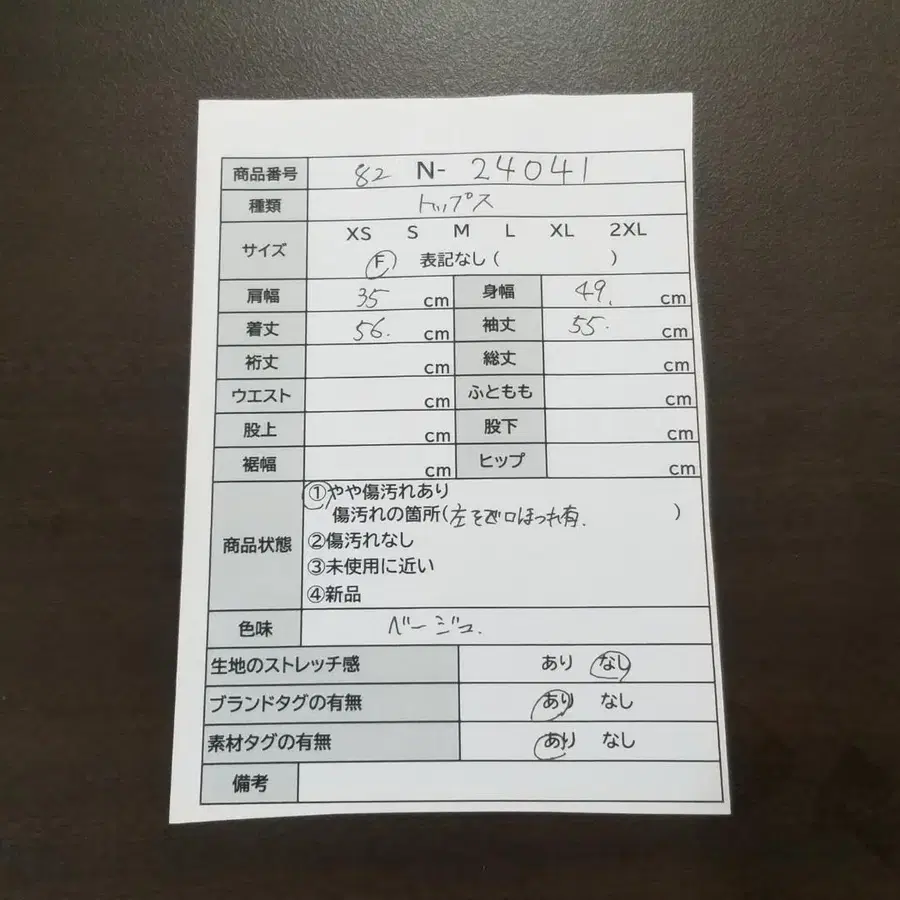 商品番号 82 N- 24041
種類 トップス
サイズ XS S M L XL 2XL
F 表記なし( )
肩幅 35 cm 身幅 49. cm
着丈 56. cm 袖丈 55. cm
裄丈 cm 総丈 cm
ウエスト cm ふともも cm
股上 cm 股下 cm
裾幅 cm ヒップ cm
商品状態 ①やや傷汚れあり
傷汚れの箇所(左そで口ほつれ有. )
②傷汚れなし
③未使用に近い
④新品
色味 ベージュ.
生地のストレッチ感 あり なし
ブランドタグの有無 あり なし
素材タグの有無 あり なし
備考